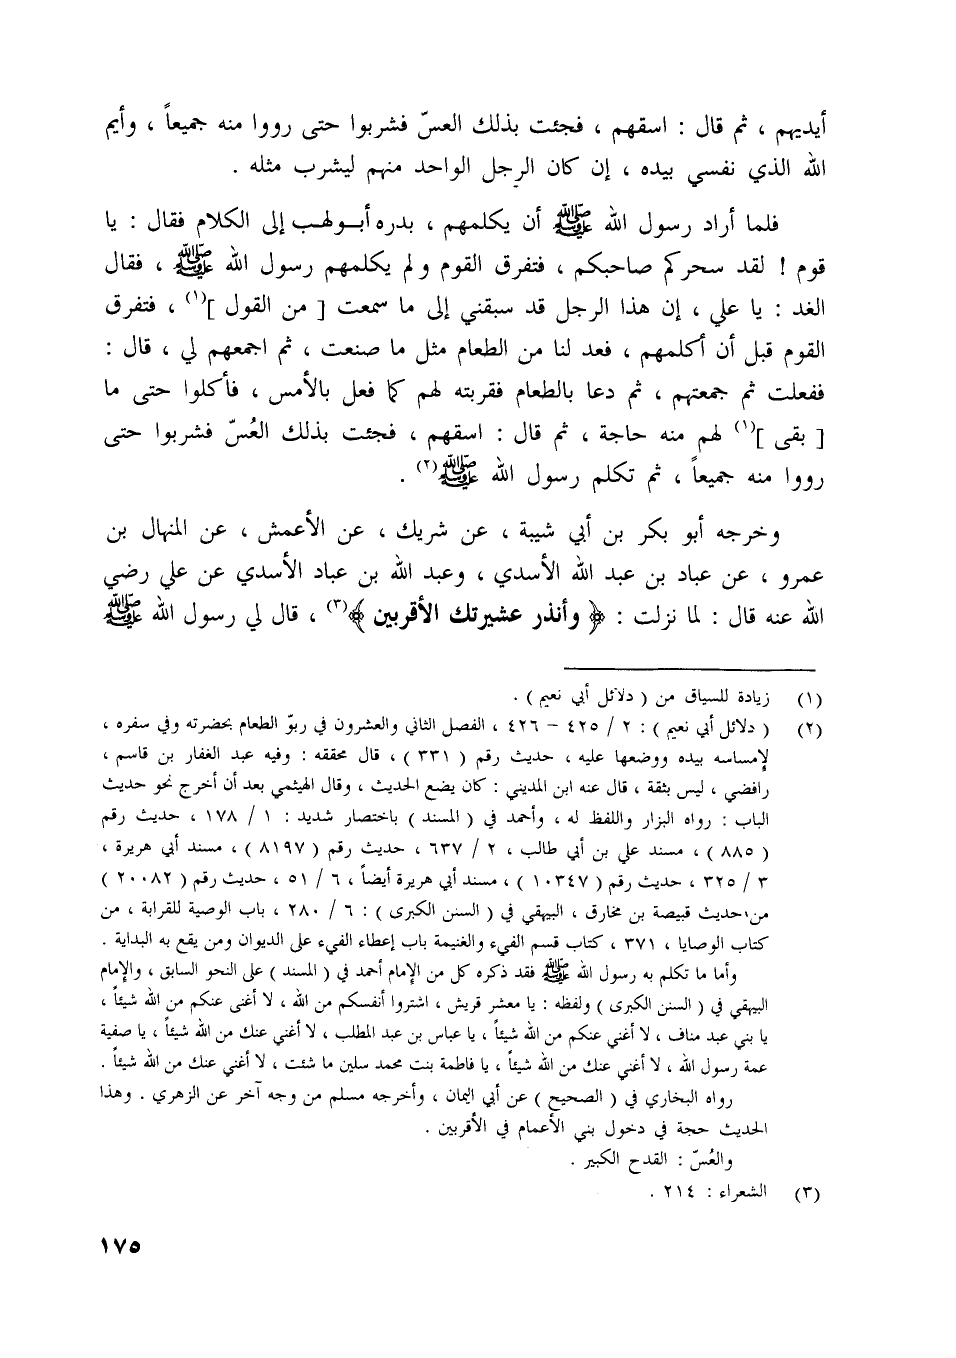 أيديهم ، ثم قال : اسقهم ، فجئت بذلك العسّ فشربوا حتى رووا منه جميعاً ، وأيم
الله الذي نفسي بيده ، إن كان الرجل الواحد منهم ليشرب مثله .
فلما أراد رسول الله ﷺ أن يكلمهم ، بدره أبـو لهـب إلى الكلام فقال : يا
قوم ! لقد سحركم صاحبكم ، فتفرق القوم ولم يكلمهم رسول الله ﷺ ، فقال
الغد : يا علي ، إن هذا الرجل قد سبقني إلى ما سمعت [ من القول ](١) ، فتفرق
القوم قبل أن أكلمهم ، فعد لنا من الطعام مثل ما صنعت ، ثم اجمعهم لي ، قال :
ففعلت ثم جمعتهم ، ثم دعا بالطعام فقربته لهم كما فعل بالأمس ، فأكلوا حتى ما
[ بقى ](١) لهم منه حاجة ، ثم قال : اسقهم ، فجئت بذلك العُسّ فشربوا حتى
رووا منه جميعاً ، ثم تكلم رسول الله ﷺ(٢) .
وخرجه أبو بكر بن أبي شيبة ، عن شريك ، عن الأعمش ، عن المنهال بن
عمرو ، عن عباد بن عبد الله الأسدي ، وعبد الله بن عباد الأسدي عن علي رضي
الله عنه قال : لما نزلت : ﴿ وأنذر عشيرتك الأقربين ﴾(٣) ، قال لي رسول الله ﷺ
(١) زيادة للسياق من ( دلائل أبي نعيم ) .
(٢) ( دلائل أبي نعيم ) : ٢ / ٤٢٥ – ٤٢٦ ، الفصل الثاني والعشرون في ربوّ الطعام بحضرته وفي سفره ،
لإمساسه بيده ووضعها عليه ، حديث رقم ( ٣٣١ ) ، قال محققه : وفيه عبد الغفار بن قاسم ،
رافضي ، ليس بثقة ، قال عنه ابن المديني : كان يضع الحديث ، وقال الهيثمي بعد أن أخرج نحو حديث
الباب : رواه البزار واللفظ له ، وأحمد في ( المسند ) باختصار شديد : ١ / ١٧٨ ، حديث رقم
( ٨٨٥ ) ، مسند علي بن أبي طالب ، ٢ / ٦٣٧ ، حديث رقم ( ٨١٩٧ ) ، مسند أبي هريرة ،
٣ / ٣٢٥ ، حديث رقم ( ١٠٣٤٧ ) ، مسند أبي هريرة أيضاً ، ٦ / ٥١ ، حديث رقم ( ٢٠٠٨٢ )
من حديث قبيصة بن مخارق ، البيهقي في ( السنن الكبرى ) : ٦ / ٢٨٠ ، باب الوصية للقرابة ، من
كتاب الوصايا ، ٣٧١ ، كتاب قسم الفيء والغنيمة باب إعطاء الفيء على الديوان ومن يقع به البداية .
وأما ما تكلم به رسول الله ﷺ فقد ذكره كل من الإمام أحمد في ( المسند ) على النحو السابق ، والإمام
البيهقي في ( السنن الكبرى ) ولفظه : يا معشر قريش ، اشتروا أنفسكم من الله ، لا أغنى عنكم من الله شيئاً ،
يا بني عبد مناف ، لا أغني عنكم من الله شيئاً ، يا عباس بن عبد المطلب ، لا أغني عنك من الله شيئاً ، يا صفية
عمة رسول الله ، لا أغني عنك من الله شيئاً ، يا فاطمة بنت محمد سلين ما شئت ، لا أغني عنك من الله شيئاً .
رواه البخاري في ( الصحيح ) عن أبي اليمان ، وأخرجه مسلم من وجه آخر عن الزهري . وهذا
الحديث حجة في دخول بني الأعمام في الأقربين .
والعُسّ : القدح الكبير .
(٣) الشعراء : ٢١٤ .
١٧٥